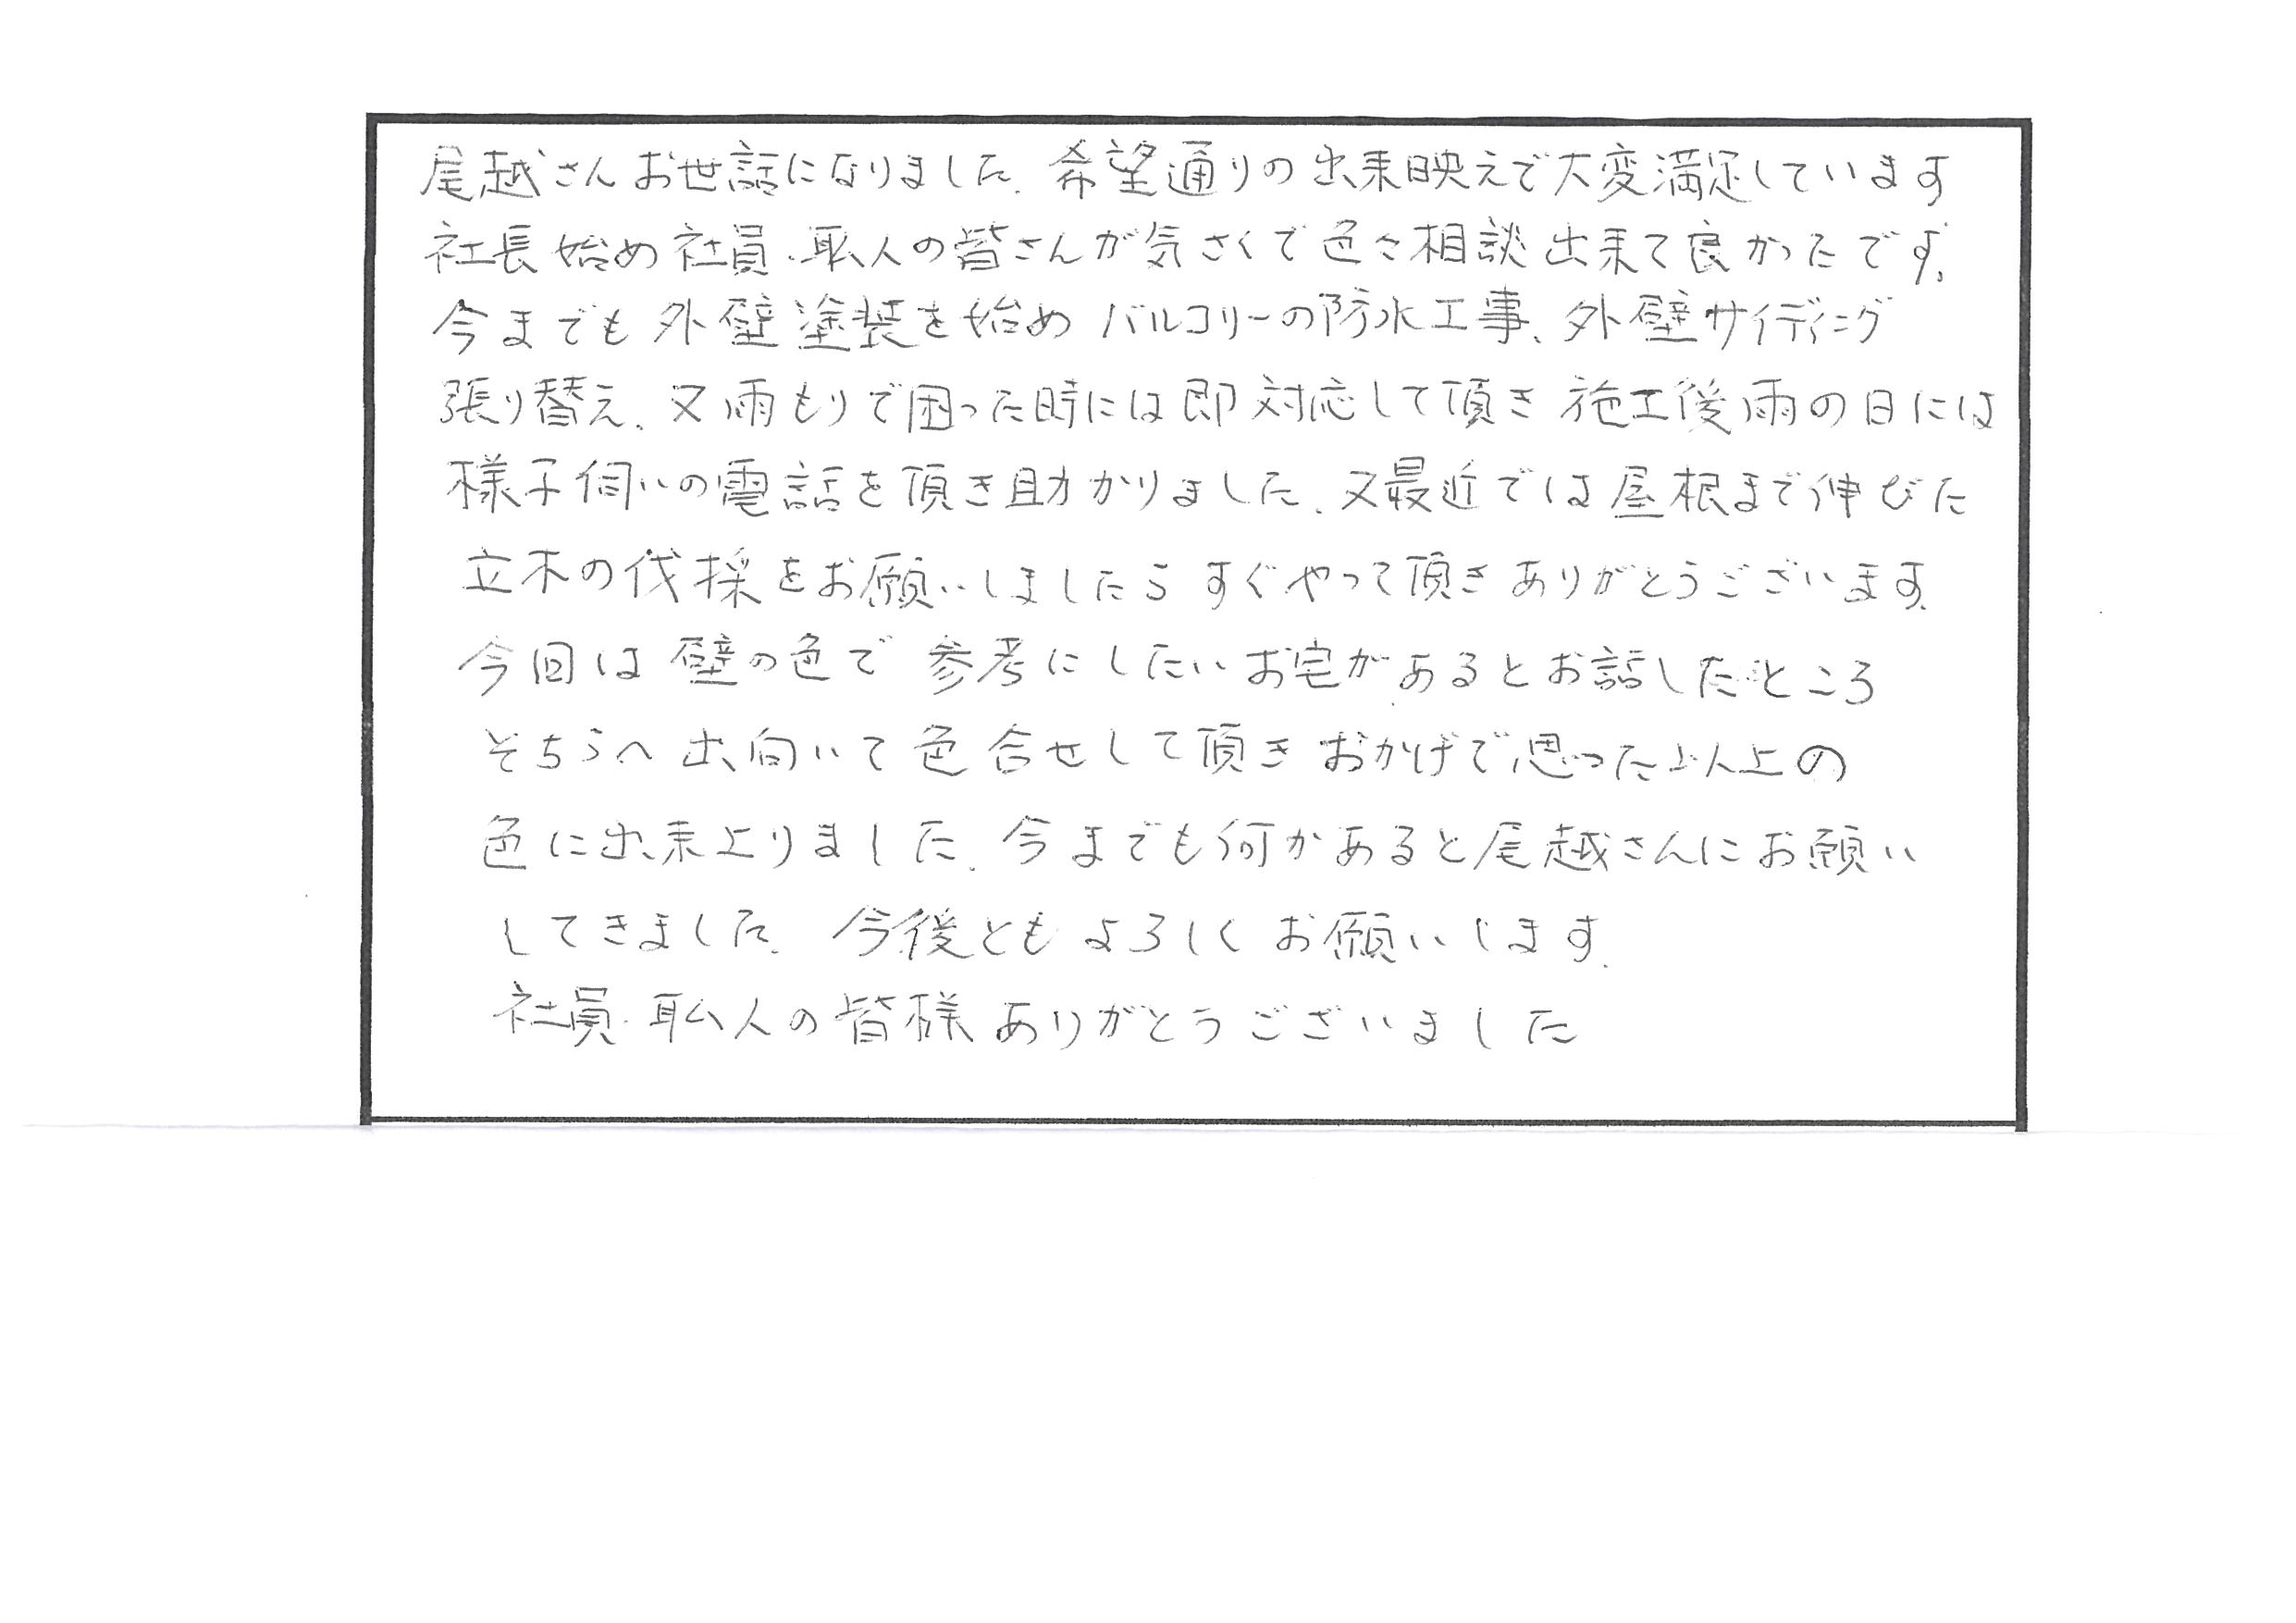 尾越さんお世話になりました。希望通りの出来映えで大変満足しています
社長始め社員、职人の皆さんが気さくで色々相談出来て良かったです。
今までも外壁塗装を始めバルコリーの防水工事、外壁サイディング
張り替え、又雨もりで困った時には即対応して頂き施工後雨の日には
様子伺いの電話を頂き助かりました。又最近では屋根まで伸びた
立木の伐採をお願いしましたらすぐやって頂きありがとうございます。
今回は壁の色で参考にしたいお宅があるとお話したところ
そちらへ出向いて色合せして頂きおかげで思った以上の
色に出来上りました。今までも何かあると尾越さんにお願い
してきました。今後ともよろしくお願いします。
社員、职人の皆様ありがとうございました